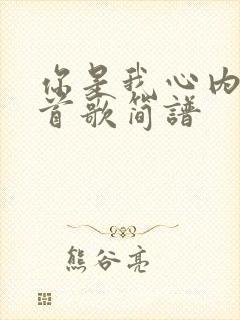 你是我心内
首歌简谱
熊谷亮